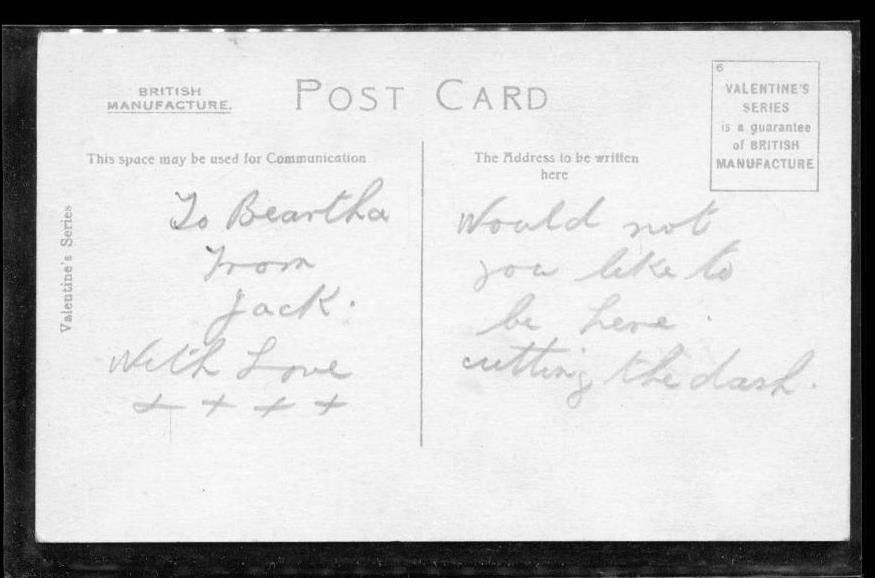 BRITISH
MANUFACTURE.
POST CARD
6
VALENTINE'S
SERIES
is a guarantee
of BRITISH
MANUFACTURE
This space may be used for Communication
The Address to be written
here
Valentine's Series
To Beartha
From
Jack.
With Love
+ + + +
Would not
you like to
be here.
cutting the dash.